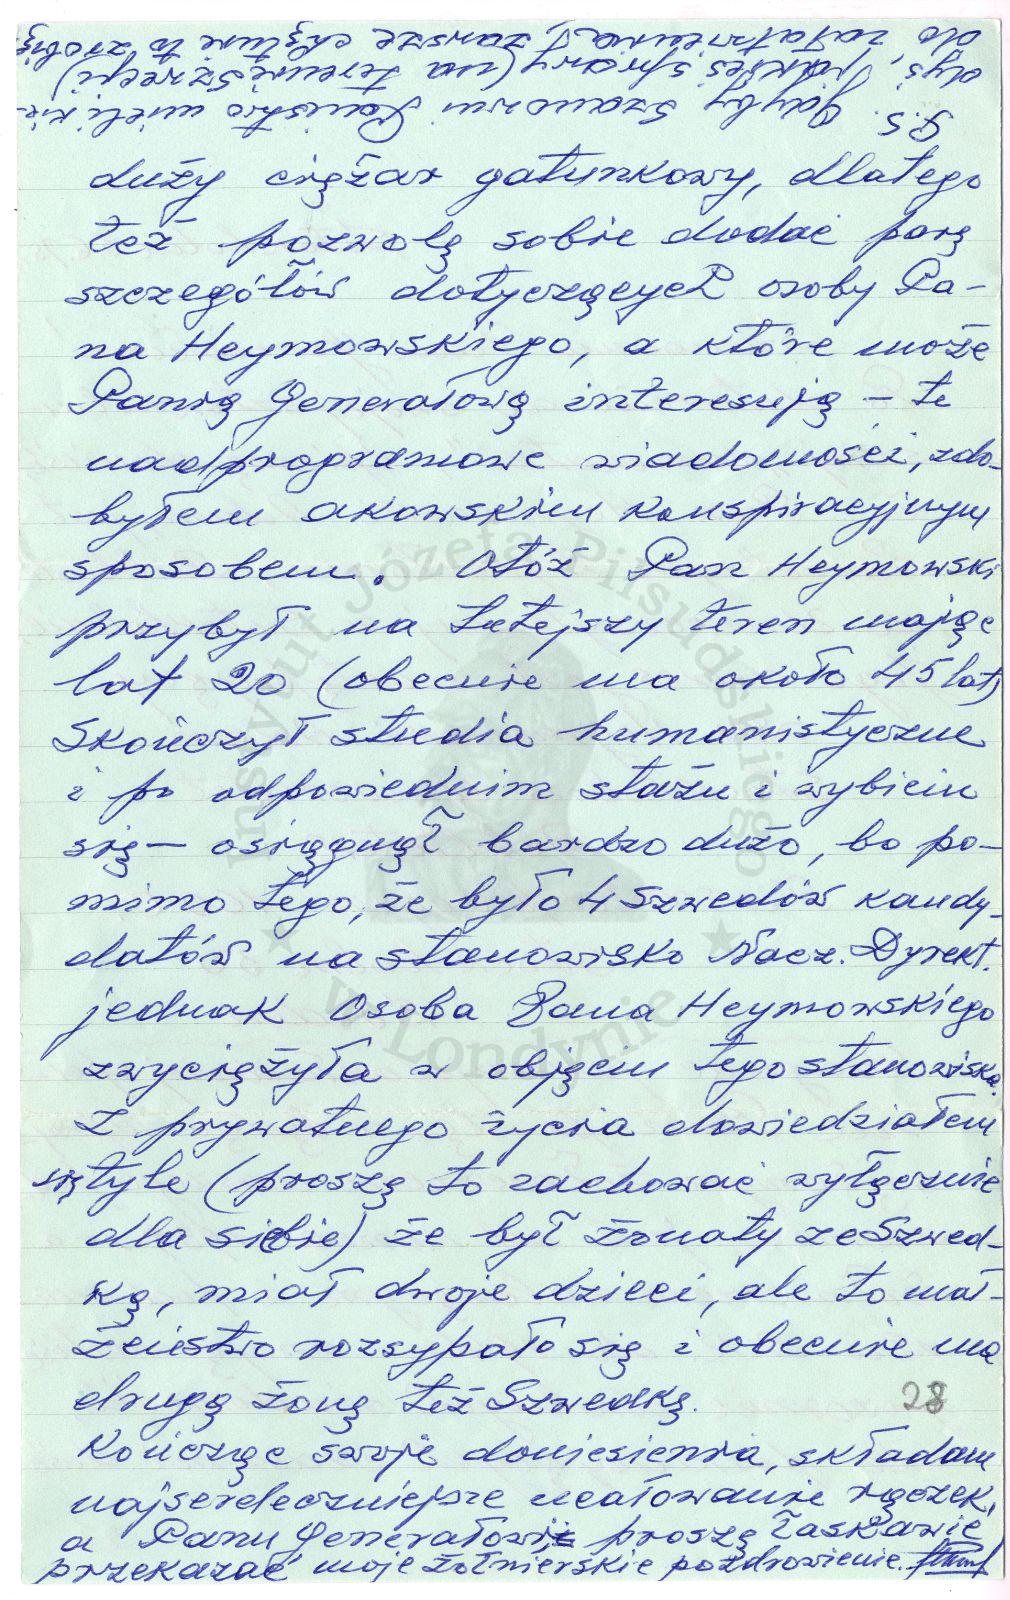 duży ciężar gatunkowy, dlatego
też pozwolę sobie dodać parę
szczegółów dotyczących osoby Pa-
na Heymowskiego, a które może
Panią Generałową interesują – te
nadprogramowe wiadomości, zdo-
byłem akowskim konspiracyjnym
sposobem. Otóż Pan Heymowski
przybył na tutejszy teren mając
lat 20 (obecnie ma około 45 lat)
Skończył studia humanistyczne
i po odpowiednim stażu i wybiciu
się – osiągnął bardzo dużo, bo po-
mimo tego, że było 4 Szwedów kandy-
datów na stanowisko Nacz. Dyrekt.
jednak Osoba Pana Heymowskiego
zwyciężyła w objęciu tego stanowiska.
Z prywatnego życia dowiedziałem
się tyle (proszę to zachować wyłącznie
dla siebie) że był żonaty ze Szwed-
ką, miał dwoje dzieci, ale to mał-
żeństwo rozsypało się i obecnie ma
drugą żonę też Szwedką.
28
Kończąc swoje doniesienia, składam
najserdeczniejsze ucałowanie rączek,
a Panu Generałowi proszę łaskawie
przekazać moje żołnierskie pozdrowienie.
P.S. Gdyby Szanowni Państwo mieli kie-
dyś jakieś sprawy (na terenie Szwecji)
do załatwienia, zawsze chętnie to zrobię
Instytut Józefa Piłsudskiego
w Londynie